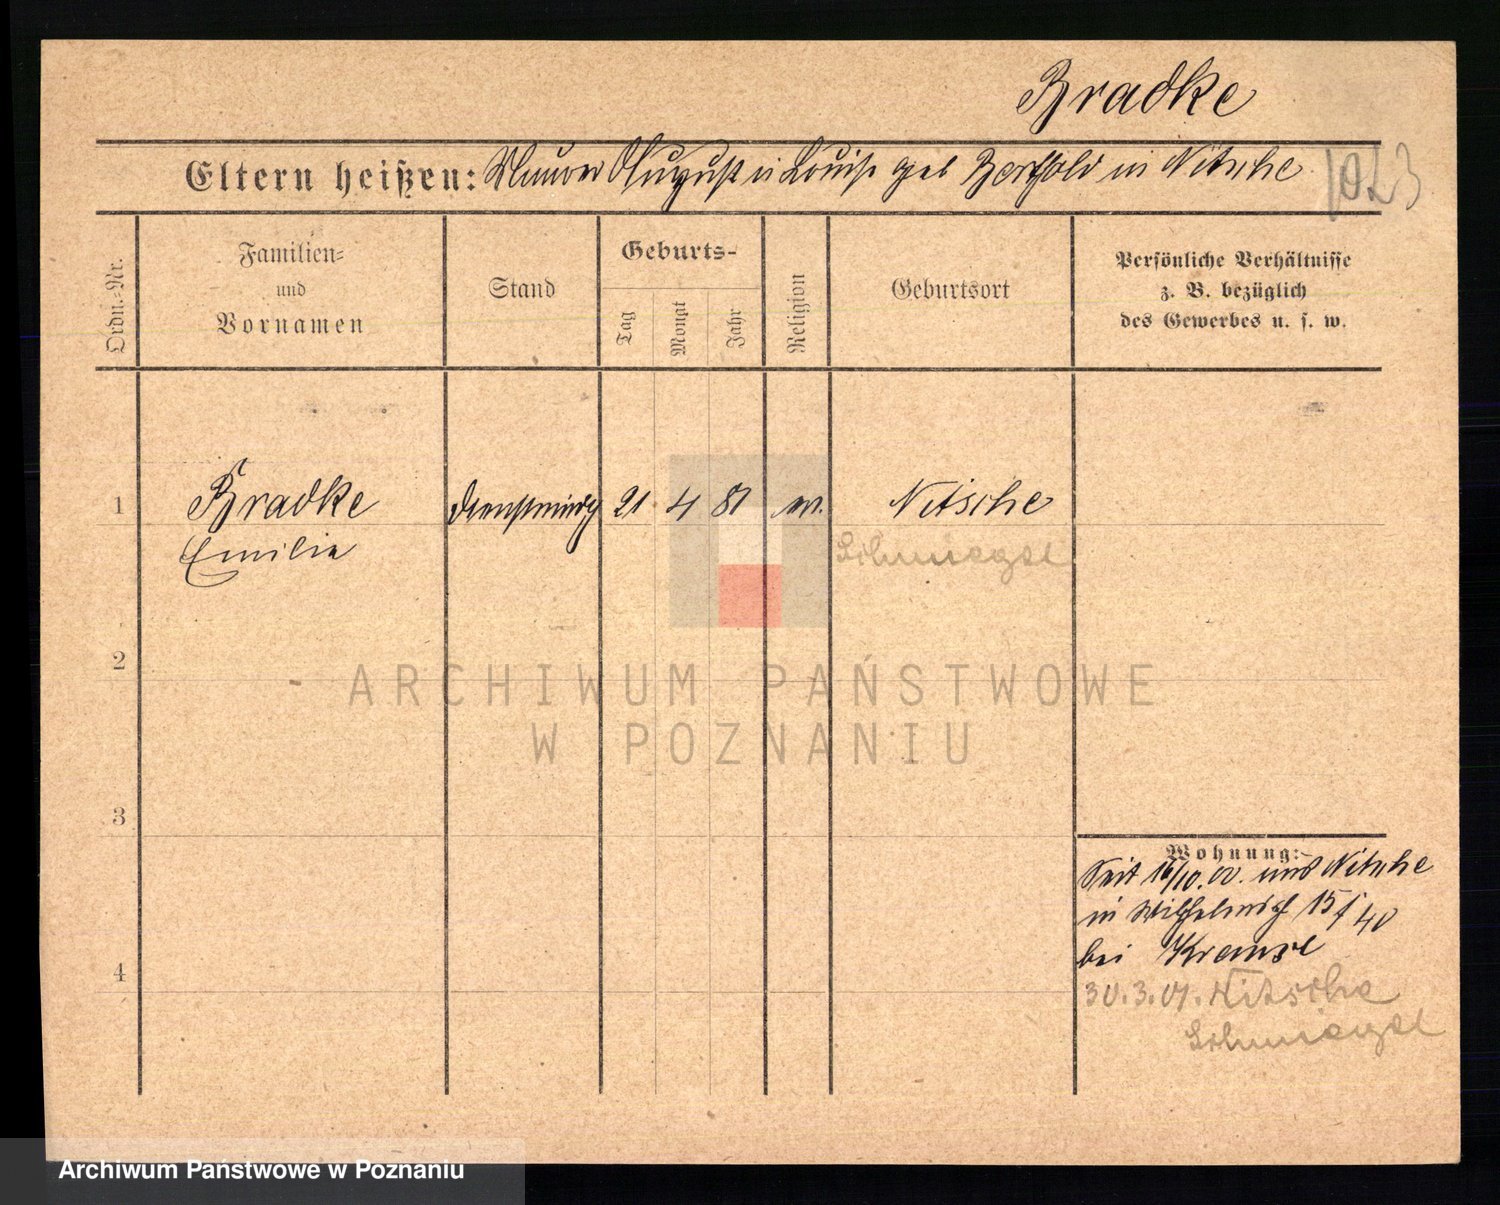 Bradke
Eltern heißen: Maurer August u Louise geb Berthold in Nitsche
1023
Ordn.-Nr.
Familien-
und
Vornamen
Stand
Geburts-
Tag
Monat
Jahr
Religion
Geburtsort
Persönliche Verhältnisse
z. B. bezüglich
des Gewerbes u. s. w.
1
Bradke
Emilie
Dienstmdch
21
4
81
ev.
Nitsche
Schmiegel
2
3
4
Wohnung:
Seit 16/10.00. aus Nitsche
in Wilhelmstr 15
bei
30.3.01. Nitsche
Schmiegel
ARCHIWUM PAŃSTWOWE
W POZNANIU
Archiwum Państwowe w Poznaniu